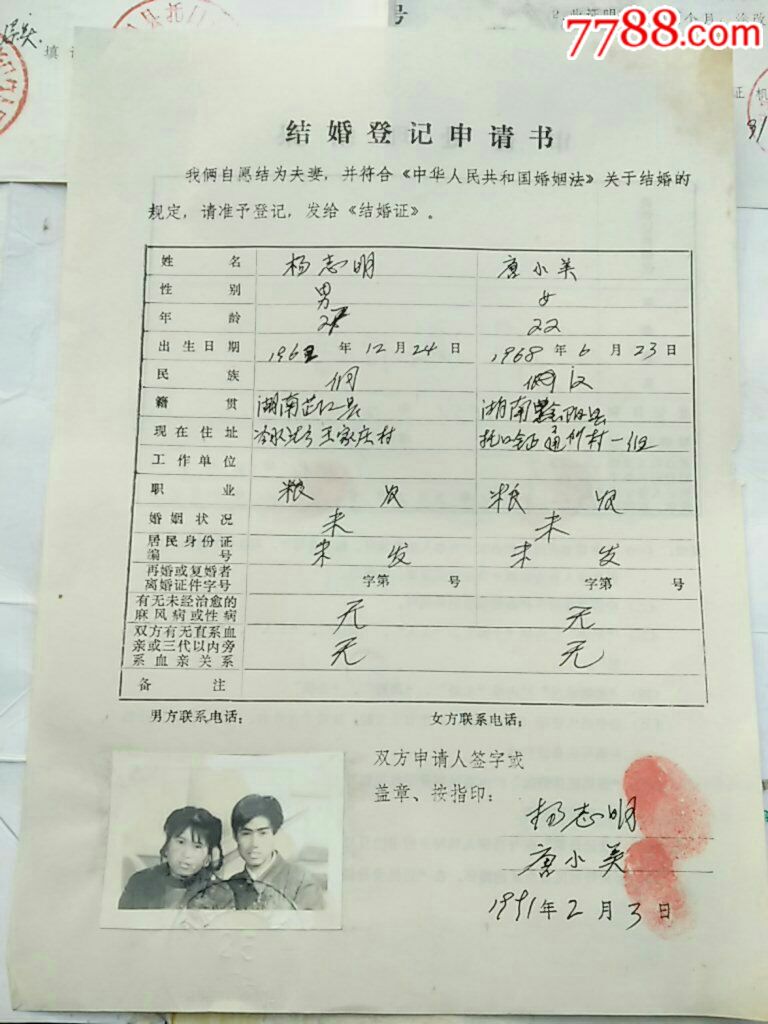 7788.com
号
填
结婚登记申请书
我俩自愿结为夫妻，并符合《中华人民共和国婚姻法》关于结婚的
规定，请准予登记，发给《结婚证》。
姓 名 杨志明 唐小美
性 别 男 女
年 龄 22
出生日期 196 年12月24日 1968年6月23日
民 族 侗 汉
籍 贯 湖南芷江县 湖南黔阳县
现在住址 王家庄村 托口 村一组
工作单位
职 业 粮农 粮农
婚姻状况 未 未
居民身份证
编 号 未发 未发
再婚或复婚者
离婚证件字号 字第 号 字第 号
有无未经治愈的
麻风病或性病 无 无
双方有无直系血
亲或三代以内旁
系血亲关系 无 无
备 注
男方联系电话： 女方联系电话：
双方申请人签字或
盖章、按指印：
杨志明
唐小美
1991年2月3日